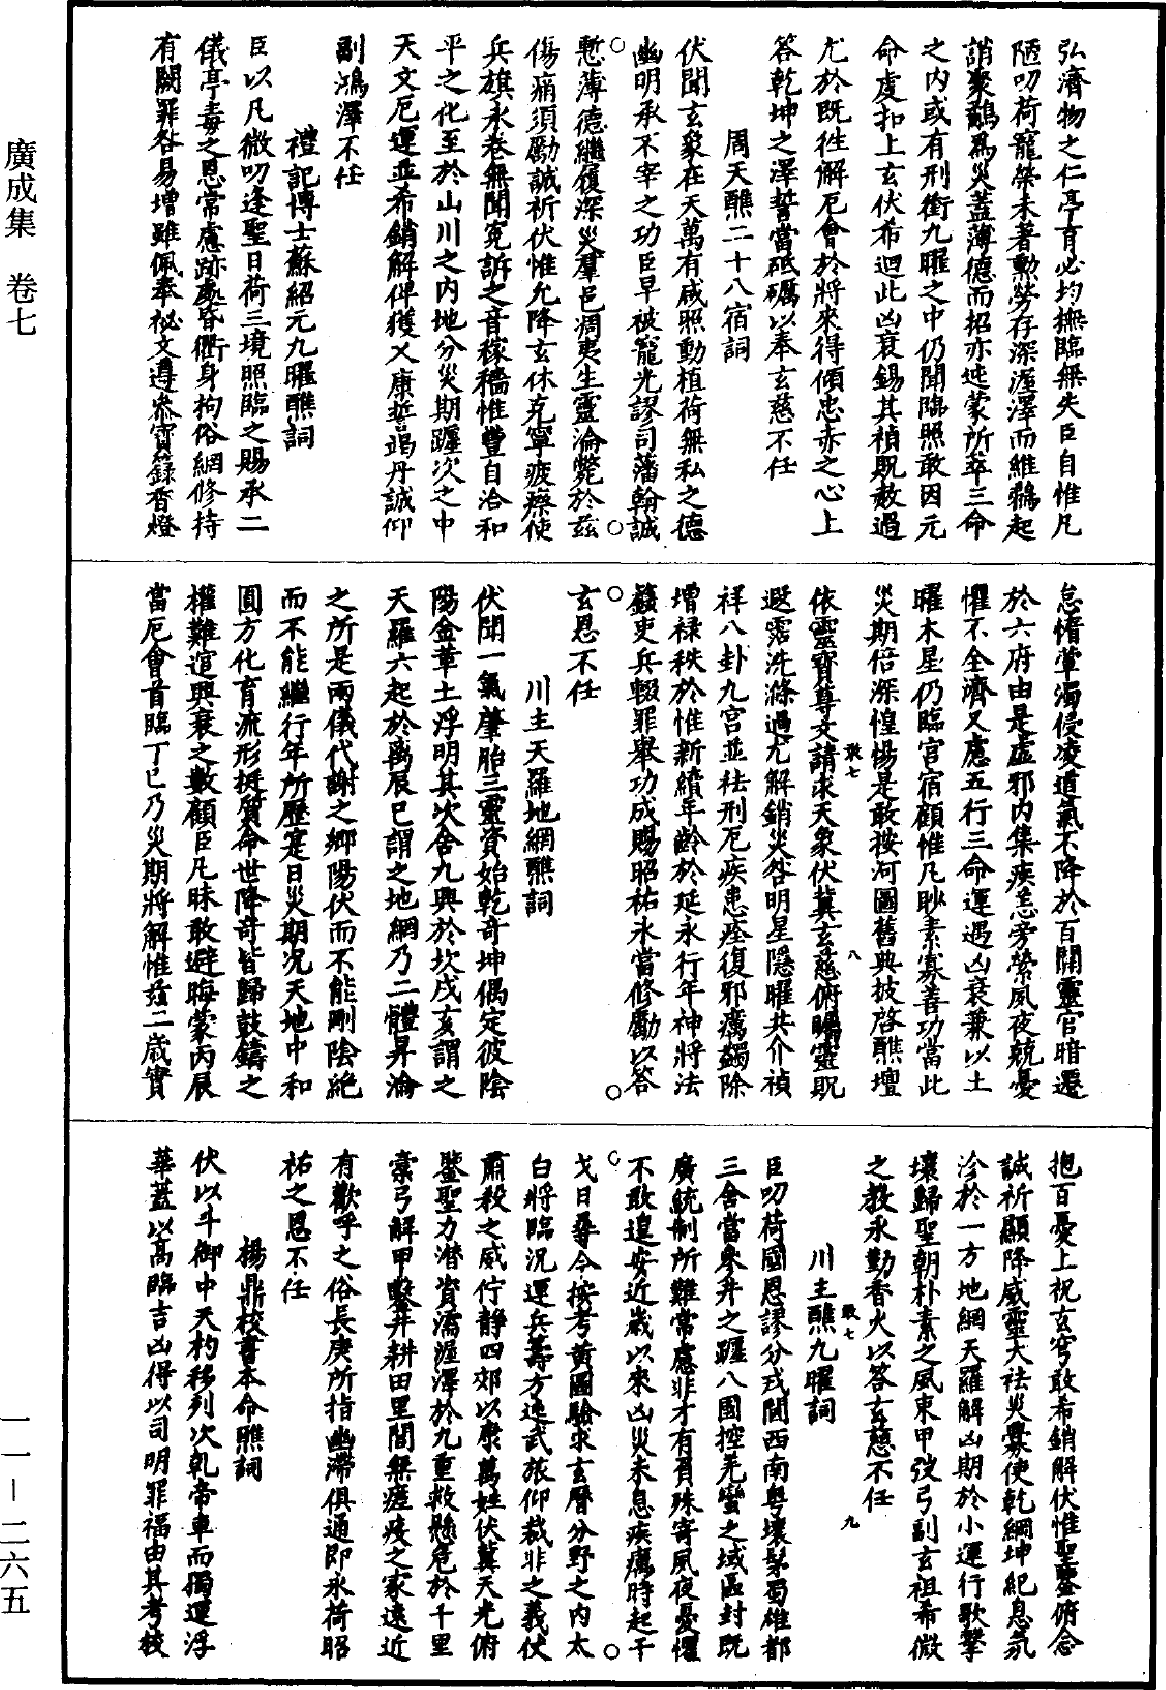 弘濟物之仁亭育必均撫臨無失臣自惟凡
陋叨荷寵榮未著勳勞存深渥澤而維鵜起
誚聚鷸為災蓋薄德而招亦迍蒙所萃三命
之內或有刑衝九曜之中仍聞臨照敢因元
命虔扣上玄伏希迴此凶衰錫其禎貺赦過
尤於既往解厄會於將來得傾忠赤之心上
答乾坤之澤誓當砥礪以奉玄慈不任
周天醮二十八宿詞
伏聞玄象在天萬有咸照動植荷無私之德
幽明承不宰之功臣早被寵光謬司藩翰誠
慙薄德繼履深災羣邑凋夷生靈淪斃於茲
傷痛須勵誠祈伏惟允降玄休克寧疲瘵使
兵旗永卷無聞冤訴之音稼穡惟豐自洽和
平之化至於山川之內地分災期躔次之中
天文厄運並希銷解俾獲乂康誓竭丹誠仰
副鴻澤不任
禮記博士蘇紹元九曜醮詞
臣以凡微叨逢聖日荷三境照臨之賜承二
儀亭毒之恩常慮跡處昏衢身拘俗網修持
有闕罪咎易增雖佩奉祕文遵參寶籙香燈
怠惰葷濁侵凌道氣不降於百關靈官暗遷
於六府由是虛邪內集疾恙旁縈夙夜兢憂
懼不全濟又慮五行三命運遇凶衰兼以土
曜木星仍臨宮宿顧惟凡眇素寡善功當此
災期倍深惶惕是敢按河圖舊典披啓醮壇
依靈寶尊文請求天象伏冀玄慈俯賜靈貺
敢七 八
遐霑洗滌過尤解銷災咎明星隱曜共介禎
祥八卦九宮並袪刑厄疾患痊復邪癘蠲除
增祿秩於惟新續年齡於延永行年神將法
籙吏兵輟罪舉功成賜昭祐永當修勵以答
玄恩不任
川主天羅地網醮詞
伏聞一氣肇胎三靈資始乾奇坤偶定彼陰
陽金草土浮明其次舍九興於坎戌亥謂之
天羅六起於離辰巳謂之地網乃二體昇淪
之所是兩儀代謝之鄉陽伏而不能剛陰絕
而不能繼行年所歷寔日災期況天地中和
圓方化育流形挺質命世降奇皆歸鼓鑄之
權難逭興衰之數顧臣凡昧敢避晦蒙丙辰
當厄會首臨丁巳乃災期將解惟茲二歲實
抱百憂上祝玄穹敢希銷解伏惟聖鑒俯念
誠祈顯降威靈大袪災釁使乾綱坤紀息氛
沴於一方地網天羅解凶期於小運行歌擊
壤歸聖朝朴素之風束甲弢弓副玄祖希微
之教永勤香火以答玄慈不任
川主醮九曜詞
敢七 九
臣叨荷國恩謬分戎閫西南粵壤梁蜀雄都
三舍當參井之躔八國控羌蠻之域區封既
廣統制所難常慮非才有負殊寄夙夜憂懼
不敢遑安近歲以來凶災未息疾癘時起干
戈日尋今按考黃圖驗求玄曆分野之內太
白將臨況運兵籌方進武旅仰裁非之義伏
肅殺之威佇靜四郊以康萬姓伏冀天光俯
鑒聖力潛資濡渥澤於九重救懸危於千里
櫜弓解甲鑿井耕田里閭無瘥疫之家遠近
有歡呼之俗長庚所指幽滯俱通即永荷昭
祐之恩不任
楊鼎校書本命醮詞
伏以斗御中天杓移列次乹帝車而獨運浮
華蓋以高臨吉凶得以司明罪福由其考校
廣成集 卷七
一一－二六五